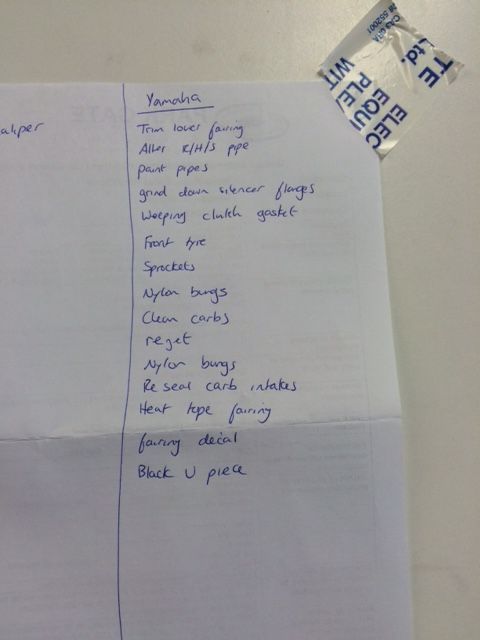 Yamaha
Trim lower fairing
Alter R/H/S pipe
paint pipes
grind down silencer flanges
Weeping clutch gasket
Front tyre
Sprockets
Nylon bungs
Clean carbs
rejet
Nylon bungs
Re seal carb intakes
Heat tape fairing
fairing decal
Black U piece
aliper
Ltd.
TE
ELEC
EQUI
PLE
WIT